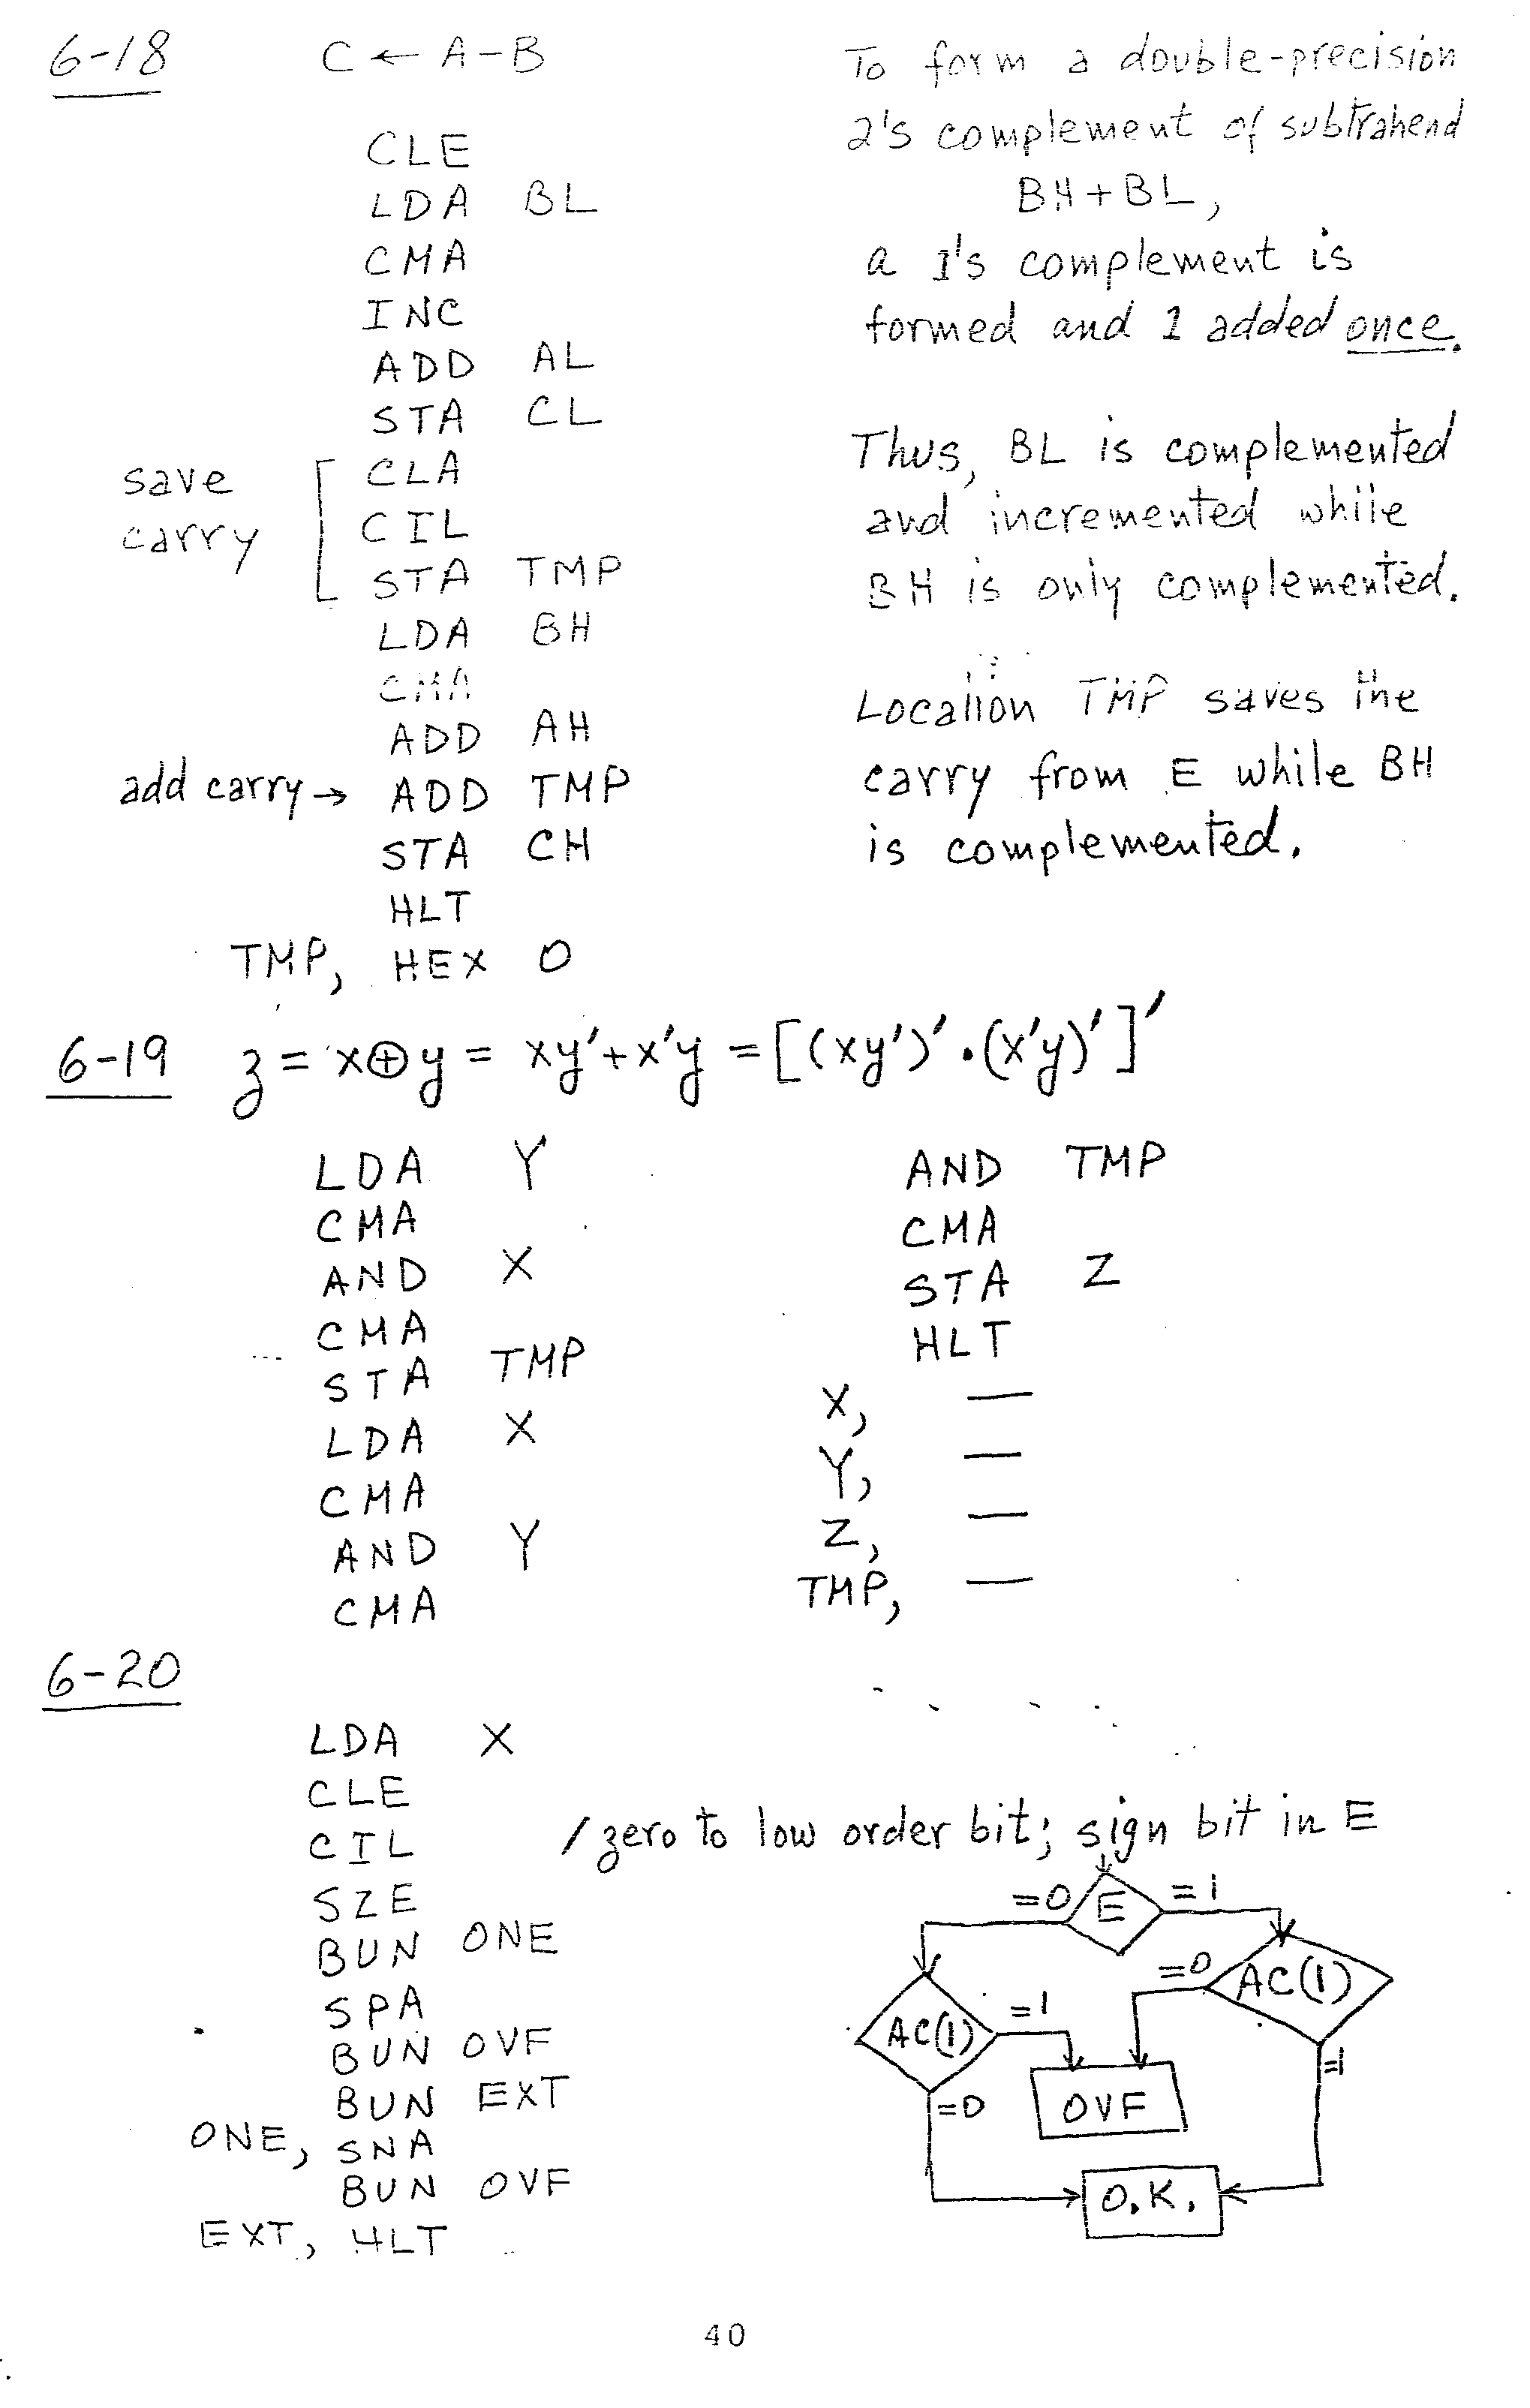 6-18 C ← A - B
CLE
LDA BL
CMA
INC
ADD AL
STA CL
save carry
CLA
CIL
STA TMP
LDA BH
CMA
ADD AH
add carry → ADD TMP
STA CH
HLT
TMP, HEX 0
To form a double-precision
2's complement of subtrahend
BH + BL,
a 1's complement is
formed and 1 added once.
Thus, BL is complemented
and incremented while
BH is only complemented.
Location TMP saves the
carry from E while BH
is complemented.
6-19 z = x⊕y = xy' + x'y = [(xy')' · (x'y)']'
LDA Y
CMA
AND X
CMA
STA TMP
LDA X
CMA
AND Y
CMA
AND TMP
CMA
STA Z
HLT
X, —
Y, —
Z, —
TMP, —
6-20
LDA X
CLE
CIL /zero to low order bit; sign bit in E
SZE
BUN ONE
SPA
BUN OVF
BUN EXT
ONE, SNA
BUN OVF
EXT, HLT
=0 E =1
=0 AC(1)
AC(1) =1
=1
=0 OVF
O.K.
40